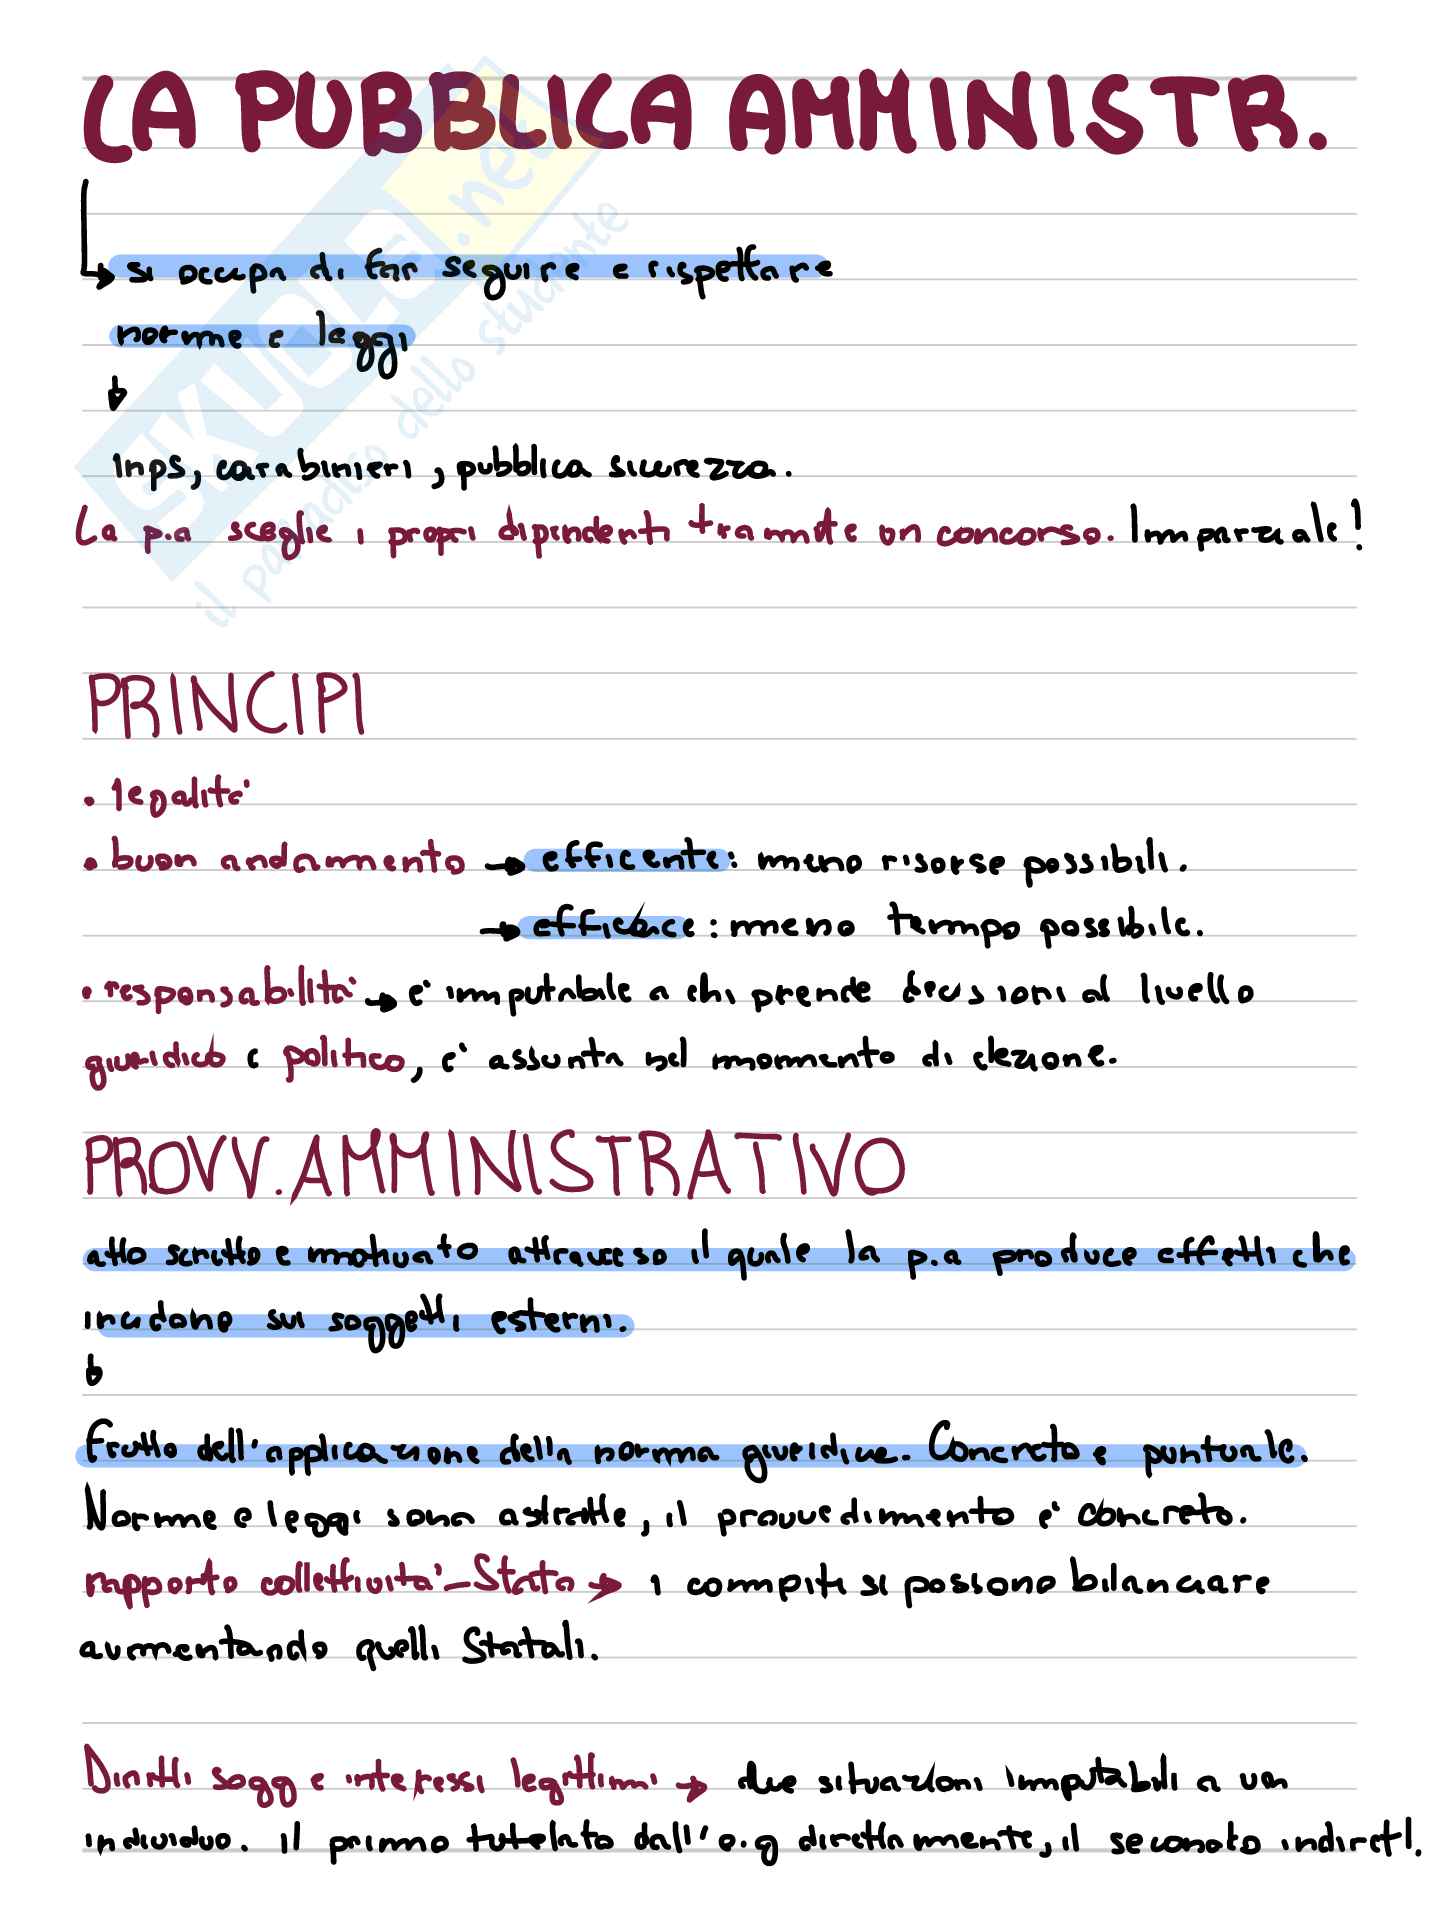 LA PUBBLICA AMMINISTR.
si occupa di far seguire e rispettare
norme e leggi
Inps, carabinieri, pubblica sicurezza.
La p.a sceglie i propri dipendenti tramite un concorso. Imparziale!
PRINCIPI
• legalità
• buon andamento → efficente: meno risorse possibili.
→ efficace: meno tempo possibile.
• responsabilità → è imputabile a chi prende decisioni al livello
giuridico e politico, è assunta nel momento di elezione.
PROVV. AMMINISTRATIVO
atto scritto e motivato attraverso il quale la p.a produce effetti che
incidono sui soggetti esterni.
Frutto dell'applicazione della norma giuridica. Concreto e puntuale.
Norme e leggi sono astratte, il provvedimento è concreto.
rapporto collettività-Stato → i compiti si possono bilanciare
aumentando quelli Statali.
Diritti sogg e interessi legittimi → due situazioni imputabili a un
individuo. il primo tutelato dall'o.g direttamente, il secondo indirett.
SKUOLA.net
il paradiso dello studente